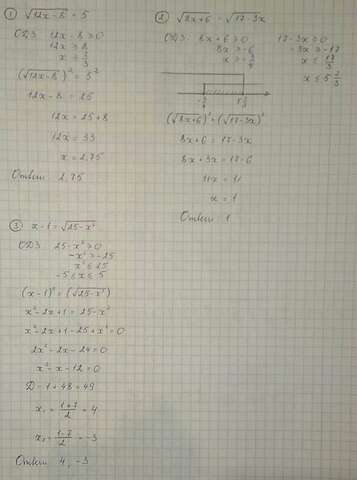 ① √12x - 8 = 5
ОДЗ: 12x - 8 ≥ 0
12x ≥ 8
x ≥ 2/3
(√12x - 8)² = 5²
12x - 8 = 25
12x = 25 + 8
12x = 33
x = 2,75
Ответ: 2,75
② √8x+6 = √17-3x
ОДЗ: 8x + 6 ≥ 0
8x ≥ -6
x ≥ -3/4
17 - 3x ≥ 0
-3x ≥ -17
x ≤ 17/3
x ≤ 5 2/3
-3/4 5 2/3
(√8x+6)² = (√17-3x)²
8x + 6 = 17 - 3x
8x + 3x = 17 - 6
11x = 11
x = 1
Ответ: 1
③ x - 1 = √25 - x²
ОДЗ: 25 - x² ≥ 0
-x² ≥ -25
x² ≤ 25
-5 ≤ x ≤ 5
(x - 1)² = (√25 - x²)²
x² - 2x + 1 = 25 - x²
x² - 2x + 1 - 25 + x² = 0
2x² - 2x - 24 = 0
x² - x - 12 = 0
D = 1 + 48 = 49
x₁ = 1+7/2 = 4
x₂ = 1-7/2 = -3
Ответ: 4, -3